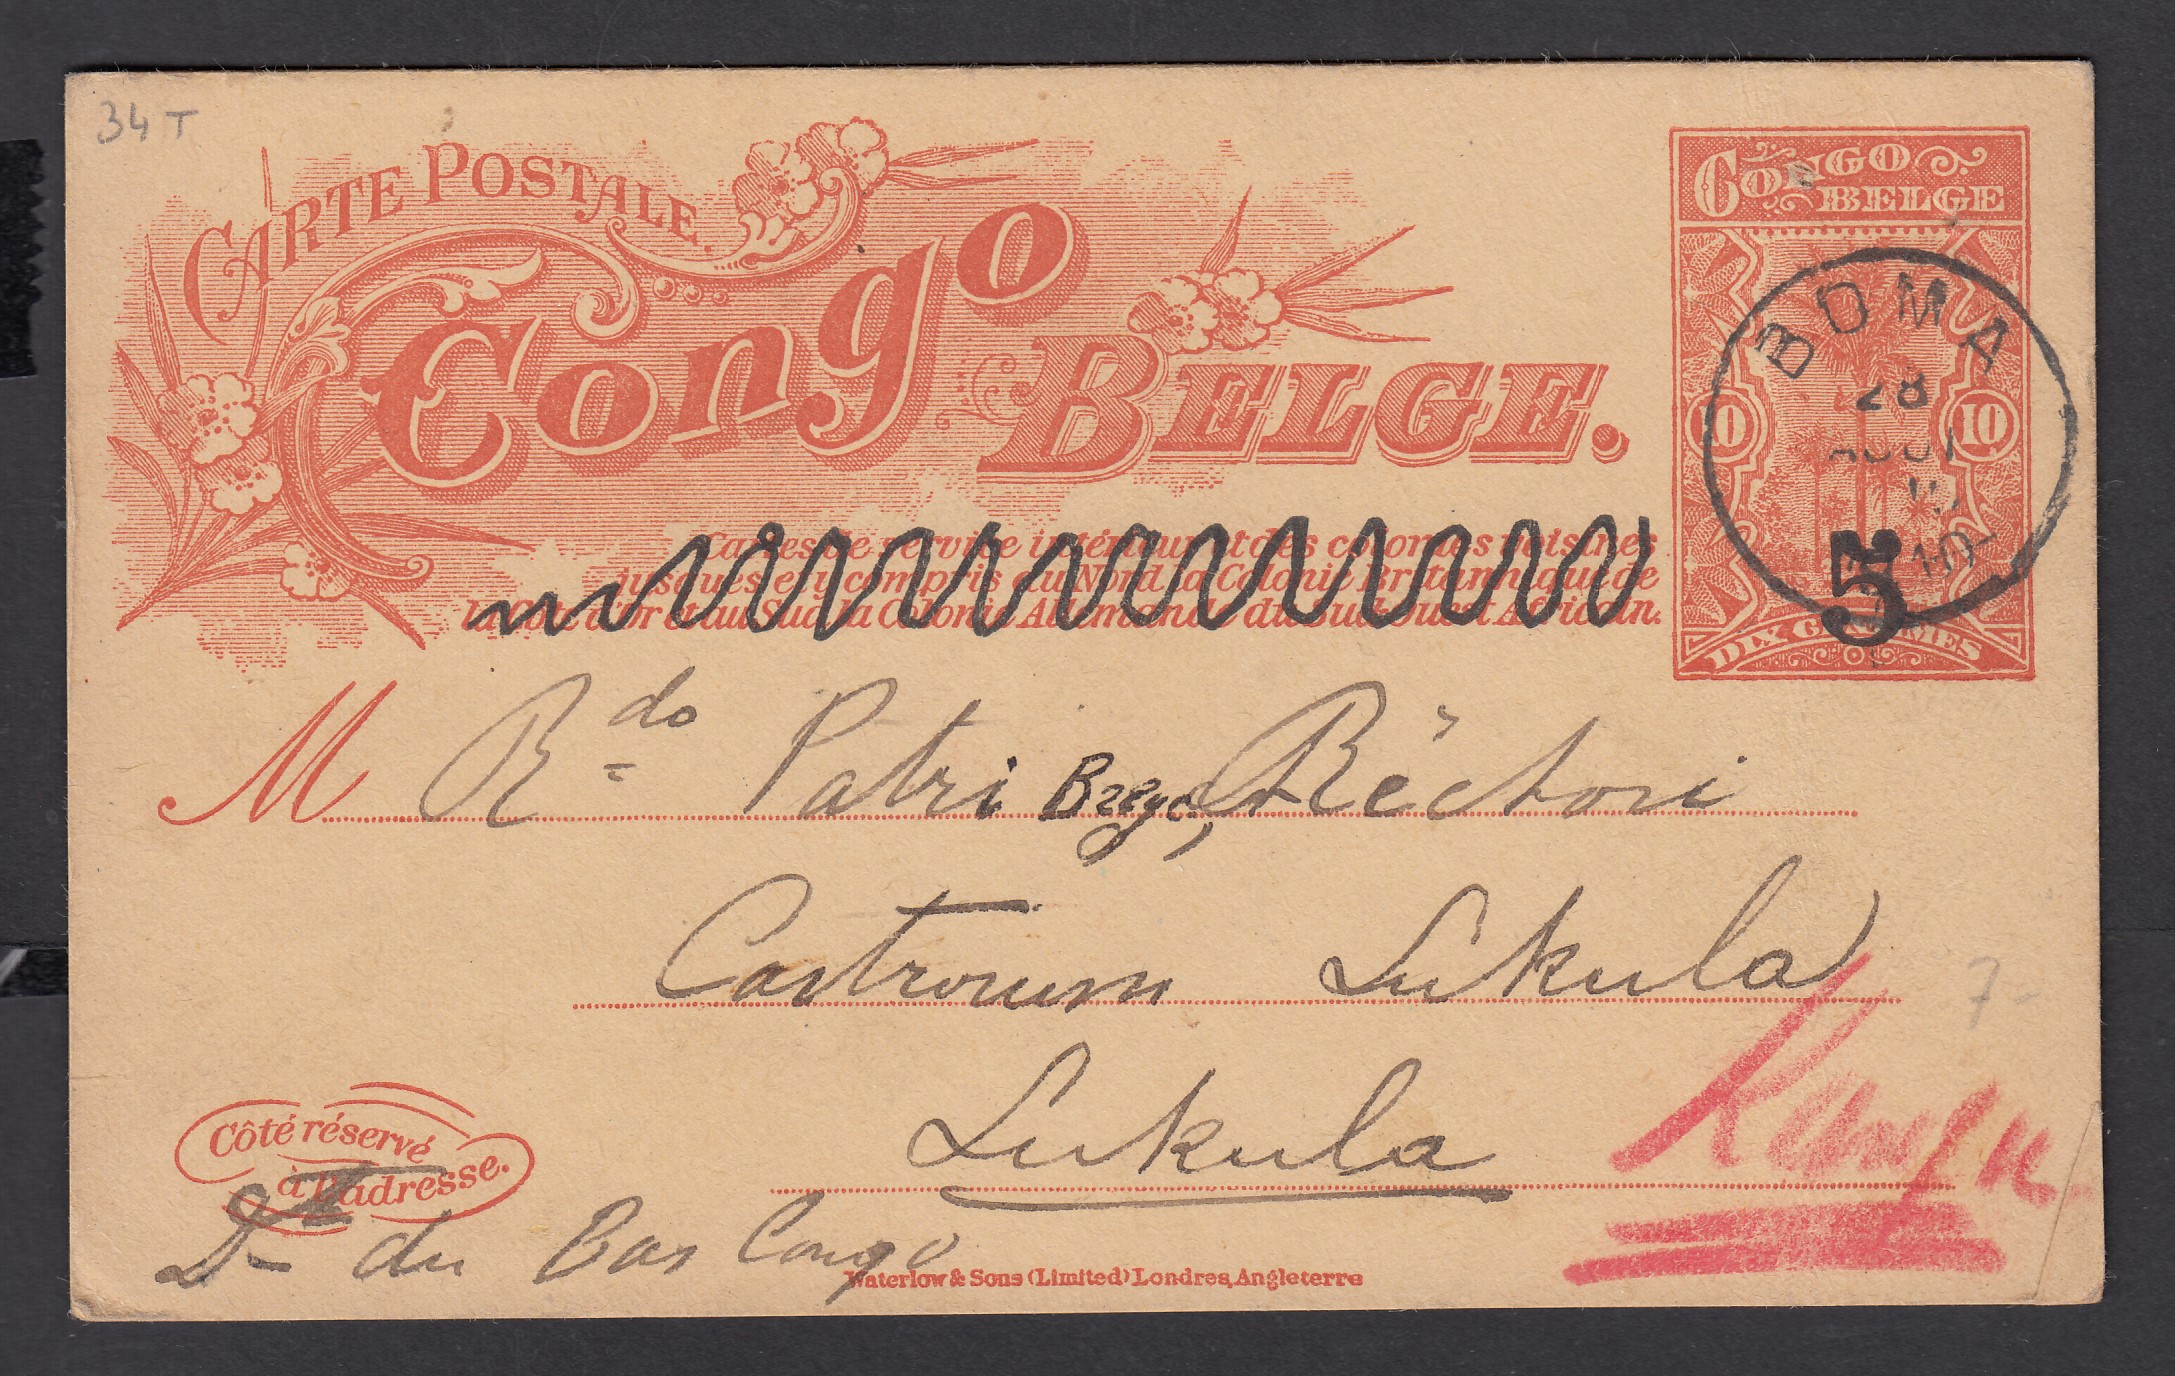 34 T
CARTE POSTALE.
Congo
BELGE.
CONGO
BELGE
BOMA
28
AOUT
10 10
5
DIX CENTIMES
Cartes de service intérieur et des colonies voisines
jusques et y compris au Nord la Colonie Britannique de
la Côte d'or et au Sud la Colonie Allemande du Sud-ouest Africain.
M Rdo Patri Réctori
Castrorum Lukula
7-
Lukula
Côté réservé
à l'adresse.
Dt du Bas Congo
Waterlow & Sons (Limited) Londres, Angleterre